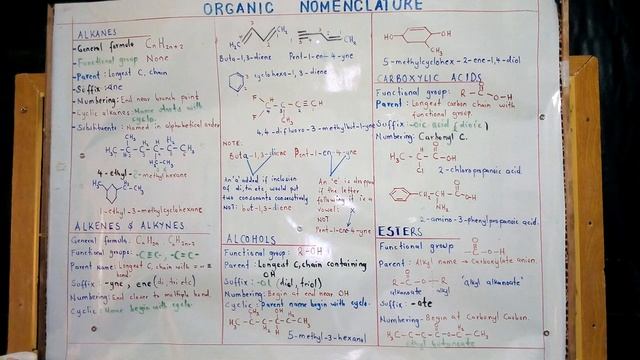 ORGANIC NOMENCLATURE
ALKANES
- General formula CnH2n+2
- Functional group None
- Parent: Longest C, chain
- Suffix: ane
- Numbering: End near branch point
- Cyclic alkanes: Name starts with
cyclo.
- Substituents: Named in alphabetical order
4-ethyl-2-methylhexane
1-ethyl-3-methylcyclohexane
ALKENES & ALKYNES
General formula: CnH2n, CnH2n-2
Functional group: -C=C-, -C≡C-
Parent name: Longest C, chain with = or ≡
bond
Suffix: -yne, ene (di, tri etc)
Numbering: End closer to multiple bond.
Cyclic: Name begin with cyclo.
Buta-1,3-diene Pent-1-en-4-yne
cyclohexa-1,3-diene
4,4-difluoro-3-methylbut-1-yne
NOTE:
Buta-1,3-diene Pent-1-en-4-yne
An 'a' added if inclusion
of di, tri etc would put
two consonants consecutively
NOT: but-1,3-diene
An 'e' is dropped
if the letter
following it is a
vowel:
NOT
Pent-1-ene-4-yne
ALCOHOLS
Functional group: R-OH
Parent: Longest C, chain containing
OH
Suffix: -ol (diol, triol)
Numbering: Begin at end near OH
Cyclic: Parent name begin with cyclo.
5-methyl-3-hexanol
HO OH
CH3
5-methylcyclohex-2-ene-1,4-diol
CARBOXYLIC ACIDS
Functional group: R-C-O-H
Parent: Longest carbon chain with
functional group.
Suffix: -oic acid (dioic)
Numbering: Carbonyl C.
2-chloropropanoic acid
2-amino-3-phenylpropanoic acid.
ESTERS
Functional group
Parent: Alkyl name → Carboxylate anion.
alkanoate alkyl
"alkyl alkanoate"
Suffix: -ate
Numbering: Begin at Carbonyl Carbon.
ethyl butanoate